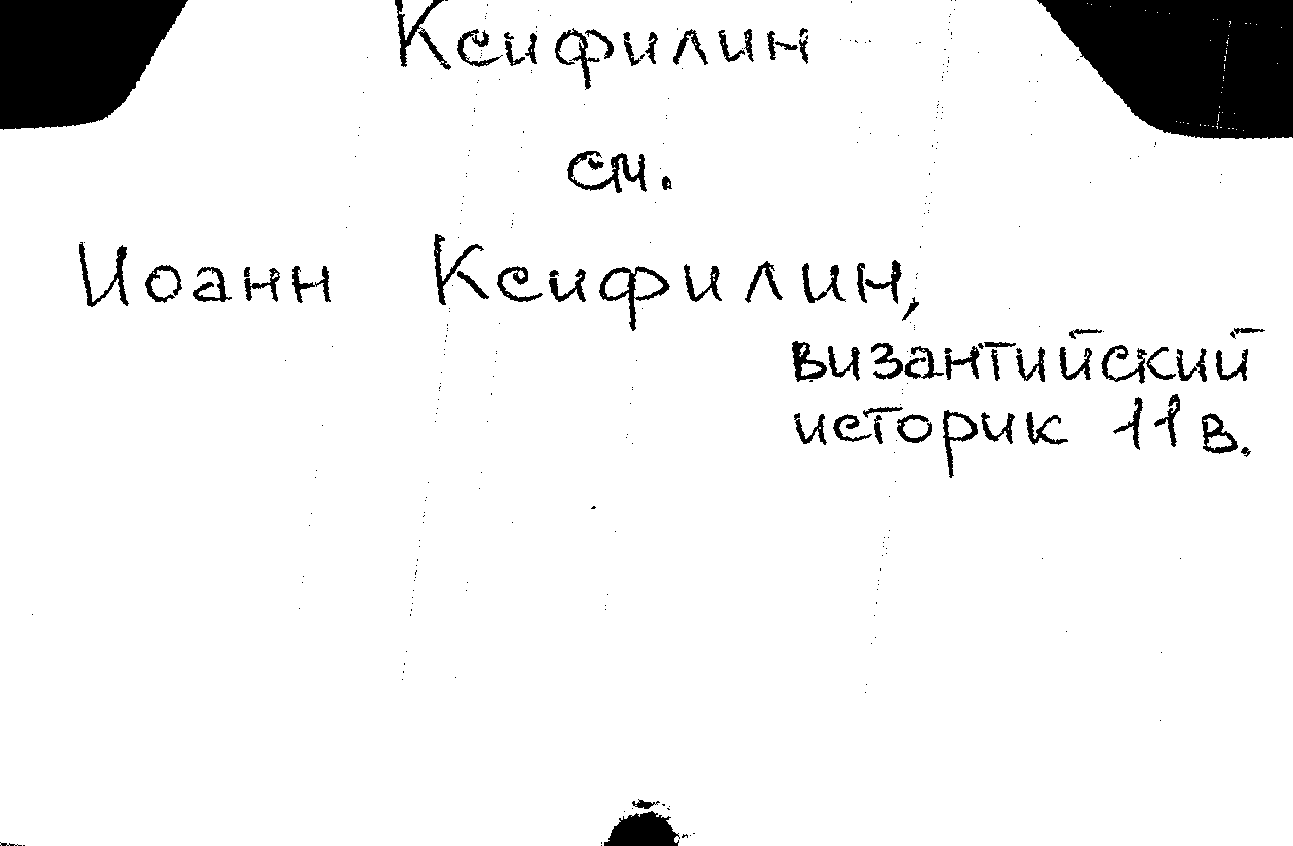 Ксифилин
см.
Иоанн Ксифилин,
византийский
историк 11 в.